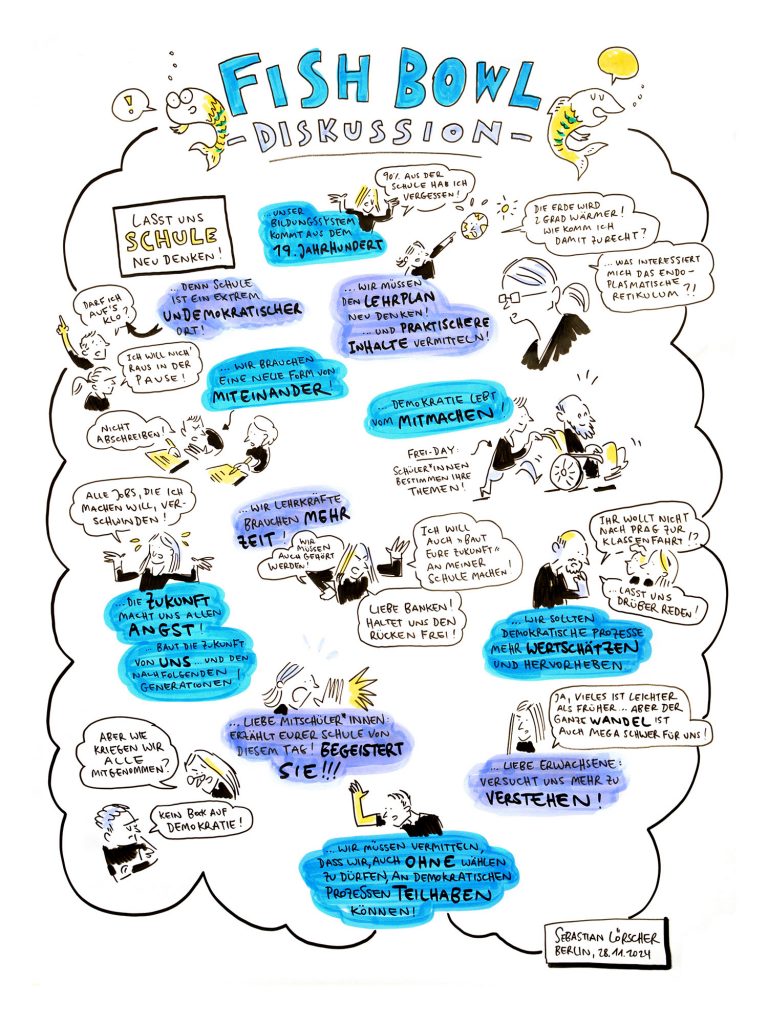 !
FISH BOWL
- DISKUSSION -
LASST UNS
SCHULE
NEU DENKEN!
...UNSER
BILDUNGSSYSTEM
KOMMT AUS DEM
19. JAHRHUNDERT
90% AUS DER
SCHULE HAB ICH
VERGESSEN!
DIE ERDE WIRD
2 GRAD WÄRMER!
WIE KOMM ICH
DAMIT ZURECHT?
... WAS INTERESSIERT
MICH DAS ENDO-
PLASMATISCHE
RETIKULUM ?!
... DENN SCHULE
IST EIN EXTREM
UNDEMOKRATISCHER
ORT!
DARF ICH
AUF'S
KLO?
ICH WILL NICH'
RAUS IN DER
PAUSE!
... WIR MÜSSEN
DEN LEHRPLAN
NEU DENKEN!
... UND PRAKTISCHERE
INHALTE VERMITTELN!
... WIR BRAUCHEN
EINE NEUE FORM VON
MITEINANDER!
NICHT
ABSCHREIBEN!
... DEMOKRATIE LEBT
VOM MITMACHEN!
FREI-DAY:
SCHÜLER*INNEN
BESTIMMEN IHRE
THEMEN!
ALLE JOBS, DIE ICH
MACHEN WILL, VER-
SCHWINDEN!
... DIE ZUKUNFT
MACHT UNS ALLEN
ANGST!
... BAUT DIE ZUKUNFT
VON UNS ... UND DEN
NACHFOLGENDEN
GENERATIONEN!
... WIR LEHRKRÄFTE
BRAUCHEN MEHR
ZEIT!
WIR
MÜSSEN
AUCH GEHÖRT
WERDEN!
ICH WILL
AUCH »BAUT
EURE ZUKUNFT«
AN MEINER
SCHULE MACHEN!
LIEBE BANKEN!
HALTET UNS DEN
RÜCKEN FREI!
IHR WOLLT NICHT
NACH PRAG ZUR
KLASSENFAHRT!?
... LASST UNS
DRÜBER REDEN!
... WIR SOLLTEN
DEMOKRATISCHE PROZESSE
MEHR WERTSCHÄTZEN
UND HERVORHEBEN.
... LIEBE MITSCHÜLER*INNEN:
ERZÄHLT EURER SCHULE VON
DIESEM TAG! BEGEISTERT
SIE!!!
JA, VIELES IST LEICHTER
ALS FRÜHER ... ABER DER
GANZE WANDEL IST
AUCH MEGA SCHWER FÜR UNS!
... LIEBE ERWACHSENE:
VERSUCHT UNS MEHR ZU
VERSTEHEN!
ABER WIE
KRIEGEN WIR
ALLE
MITGENOMMEN?
KEIN BOCK AUF
DEMOKRATIE!
... WIR MÜSSEN VERMITTELN,
DASS WIR, AUCH OHNE WÄHLEN
ZU DÜRFEN, AN DEMOKRATISCHEN
PROZESSEN TEILHABEN
KÖNNEN!
SEBASTIAN LÖRSCHER
BERLIN, 28.11.2024